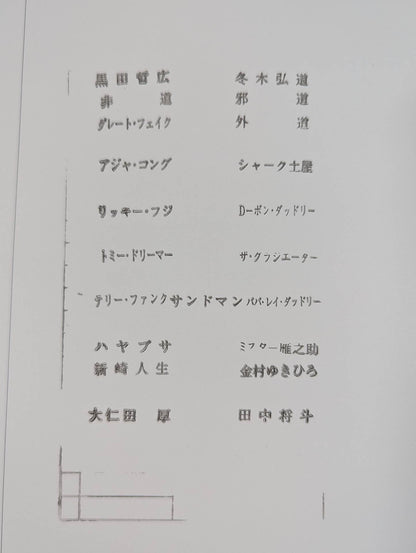 黒田哲広 冬木弘道
非道 邪道
グレート・フェイク 外道
アジャ・コング シャーク土屋
リッキー・フジ D-ボン・ダッドリー
トミー・ドリーマー ザ・グラジエーター
テリー・ファンク サンドマン ババ・レイ・ダッドリー
ハヤブサ ミスター雁之助
新崎人生 金村ゆきひろ
大仁田厚 田中将斗